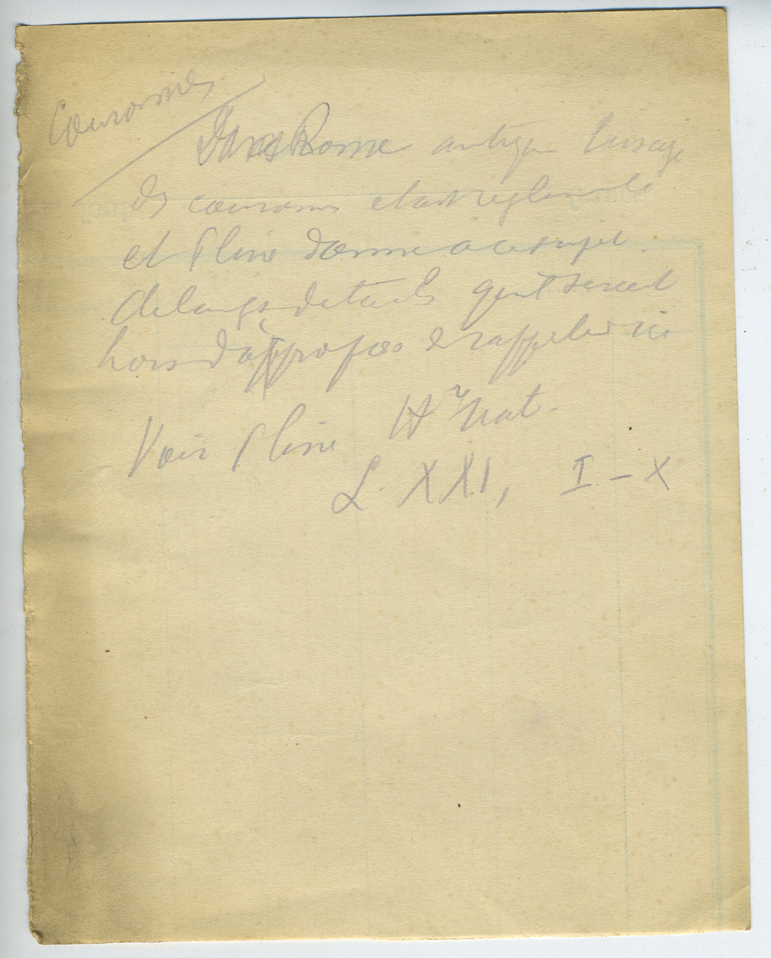 Couronnes
Dans Rome antique l'usage
des couronnes etait réglementé
et Pline donne a ce sujet
de longs details qu'il serait
hors d'à propos de rappeler ici
Voir Pline Hre Nat.
L. XXI, I – X